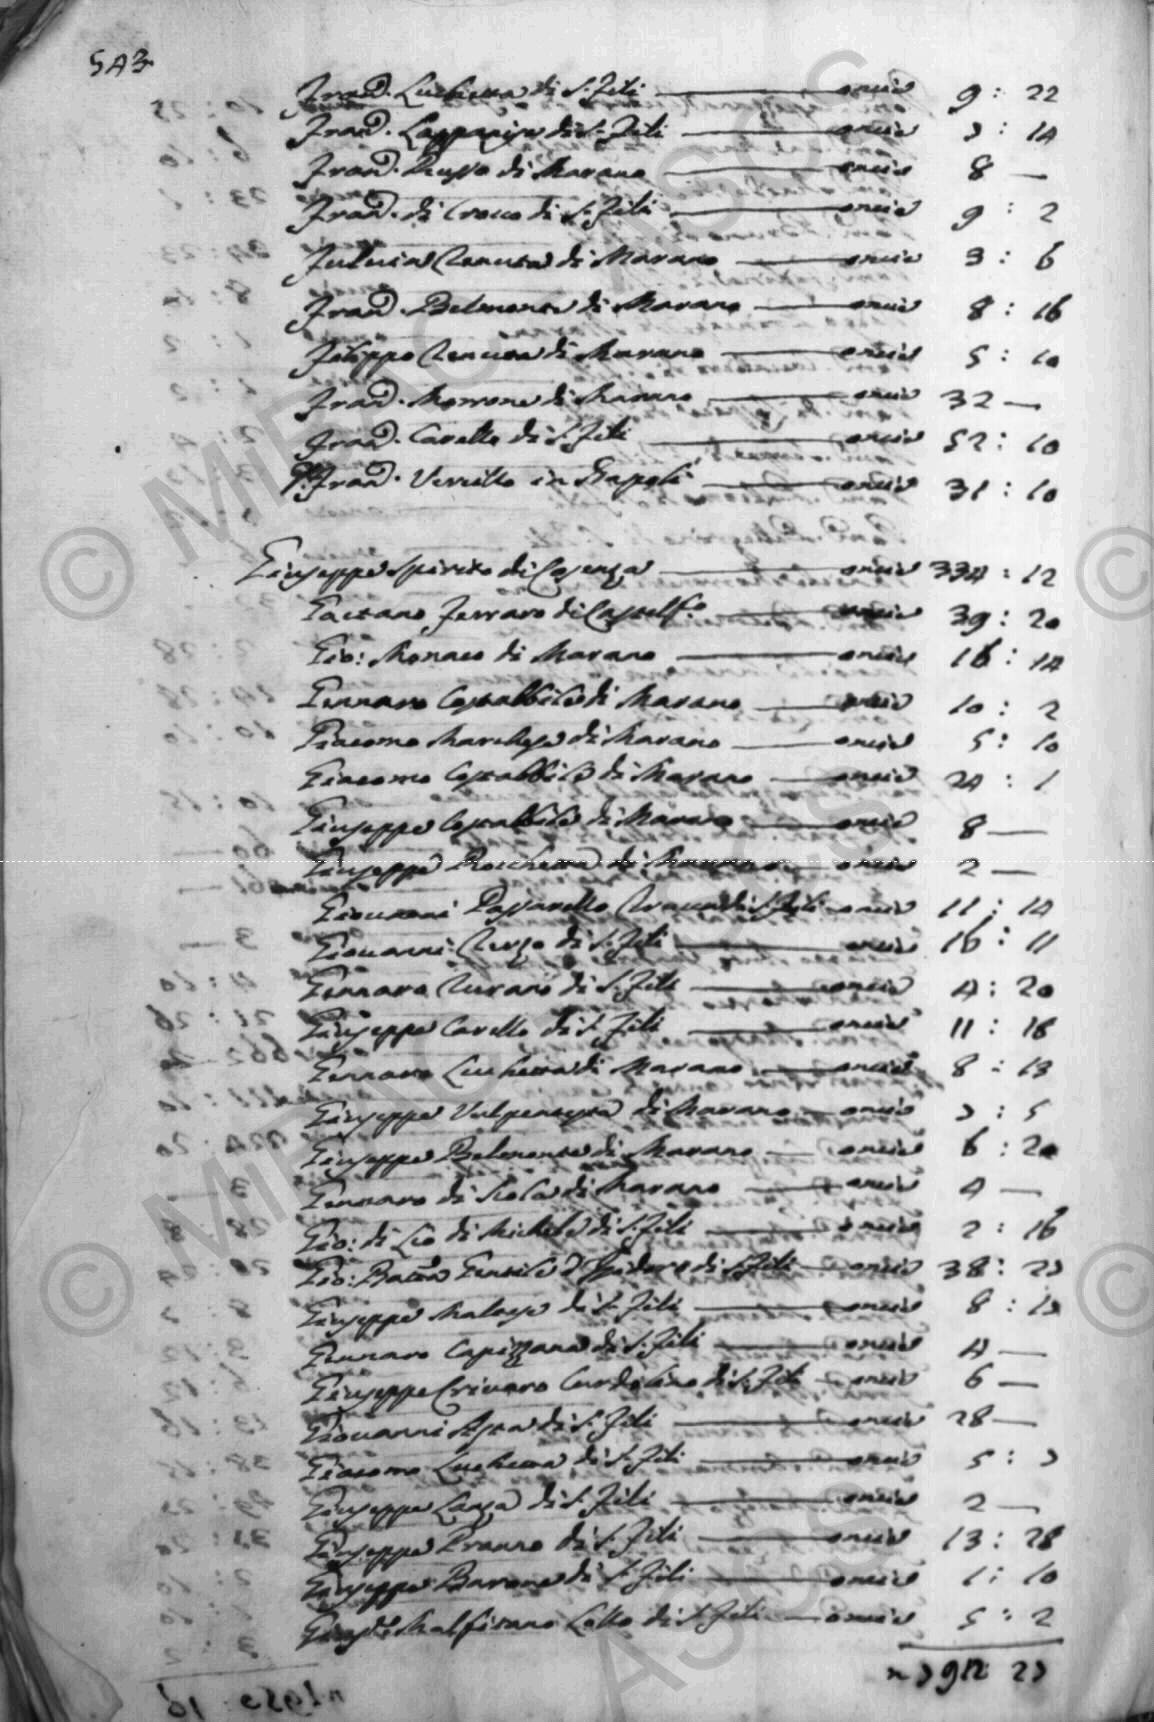 543
Fran.co Luchetta di S. Fili oncie 9 : 22
Fran.co di S. Fili oncie 3 : 14
Fran.co Russo di Marano oncie 8 —
Fran.co di Crocco di S. Fili oncie 9 : 2
Fulvia Tenuta di Marano oncie 3 : 6
Fran.co Belmonte di Marano oncie 8 : 16
Filippo Tenuta di Marano oncie 5 : 10
Fran.co Morrone di Marano oncie 32 —
Fran.co Cavello di S. Fili oncie 52 : 10
Fran.co Verritto in Napoli oncie 31 : 10
Giuseppe Spirito di Cosenza oncie 334 : 12
Gaetano Ferraro di Castelf.o oncie 39 : 20
Gio: Monaco di Marano oncie 16 : 14
Gennaro Costabbile di Marano oncie 10 : 2
Giacomo Marchese di Marano oncie 5 : 10
Giacomo Costabbile di Marano oncie 24 : 1
Giuseppe Costabbile di Marano oncie 8 —
Giuseppe Rocchetta di Marano oncie 2 —
Giovanni Passarello di S. Fili oncie 11 : 14
Giovanni di S. Fili oncie 16 : 11
Gennaro Turano di S. Fili oncie 4 : 20
Giuseppe Cavello di S. Fili oncie 11 : 16
Gennaro Luchetta di Marano oncie 8 : 13
Giuseppe Vulpentesta di Marano oncie 3 : 5
Giuseppe Belmonte di Marano oncie 6 : 20
Gennaro di Scola di Marano oncie 4 —
Gio: di Leo di Michele di S. Fili oncie 2 : 16
Gio: Batta Gentile d'Isidoro di S. Fili oncie 38 : 23
Giuseppe di S. Fili oncie 8 :
Gennaro Capizzano di S. Fili oncie 4 —
Giuseppe Crivaro di S. Fili oncie 6 —
Giovanni Asta di S. Fili oncie 28 —
Giacomo Luchetta di S. Fili oncie 5 : 3
Giuseppe Lanza di S. Fili oncie 2 —
Giuseppe Pranno di S. Fili oncie 13 : 28
Giuseppe Barone di S. Fili oncie 1 : 10
Malfitano di S. Fili oncie 5 : 2
23
© MIRAC ASCS ©
© MIRAC ASCS ©
ASCS